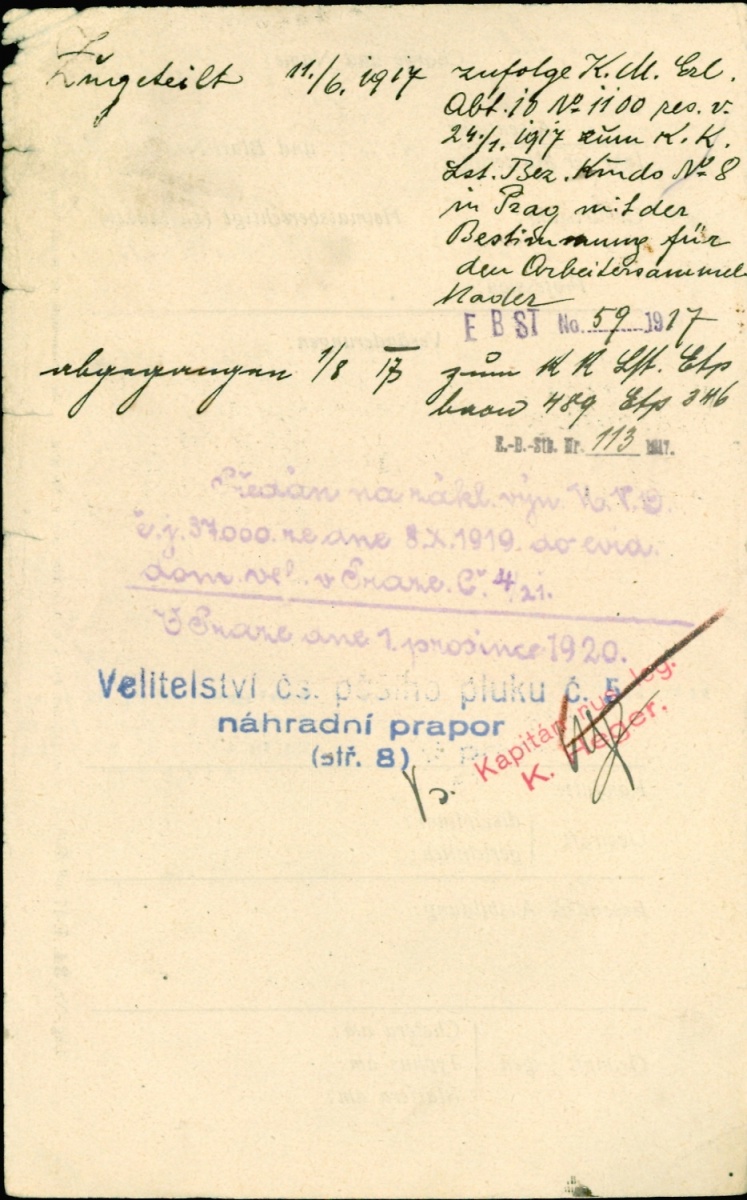 Zugeteilt 11./6. 1917 zufolge K.M. Erl.
Abt. 10 No 1100 res. v.
24./1. 1917 zum K.K.
Lst. Bez. Kmdo No 8
in Prag mit der
Bestimmung für
den Arbeitersammel
kader
E B ST No. 59 1917
abgegangen 1/8 17 zum K K Lst. Etp
baon 489 Etp 346
E.-B.-Stb. Nr. 113 1917.
Předán na zákl. výn. M.N.O.
č.j. 37.000. ze dne 8.X.1919. do evid.
dom. vel. v Praze. Č. 4/21.
V Praze dne 1. prosince 1920.
Velitelství čs. pěšího pluku č. 5
náhradní prapor
(stř. 8)
Kapitán rus. leg.
K. Heger.